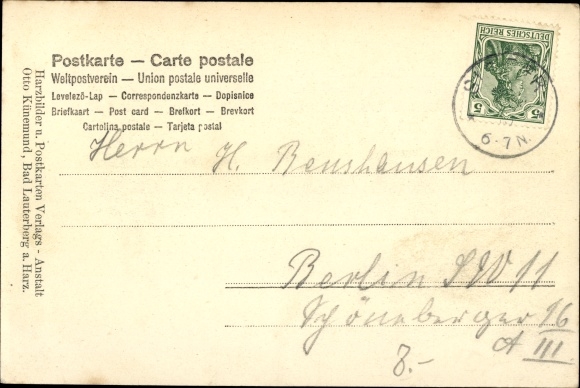 Postkarte — Carte postale
Weltpostverein — Union postale universelle
Levelező-Lap — Correspondenzkarte — Dopisnice
Briefkaart — Post card — Brefkort — Brevkort
Cartolina postale — Tarjeta postal
Harzbilder u. Postkarten Verlags - Anstalt
Otto Künemund, Bad Lauterberg a. Harz.
DEUTSCHES REICH
5 5
6-7N.
Herrn H. Benshausen
Berlin SW 11
Schöneberger 16
A III
8.-